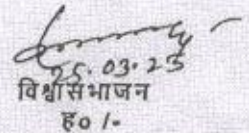 25.03.23
विश्वासभाजन
ह0 /-